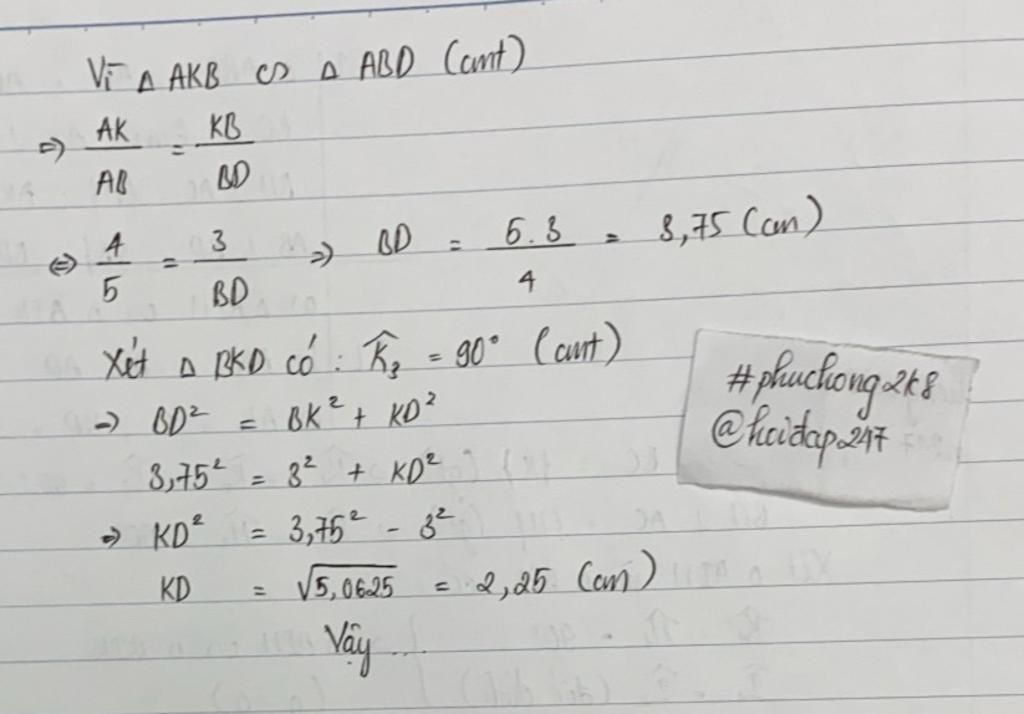 Vì △ AKB ∽ △ ABD (cmt)
⇒ AK/AB = KB/BD
⇔ 4/5 = 3/BD ⇒ BD = 5.3/4 = 3,75 (cm)
Xét △ BKD có : K̂₃ = 90° (cmt)
⇒ BD² = BK² + KD²
3,75² = 3² + KD²
⇒ KD² = 3,75² - 3²
KD = √5,0625 = 2,25 (cm)
Vậy ...
#phuchong2k8
@hoidap247